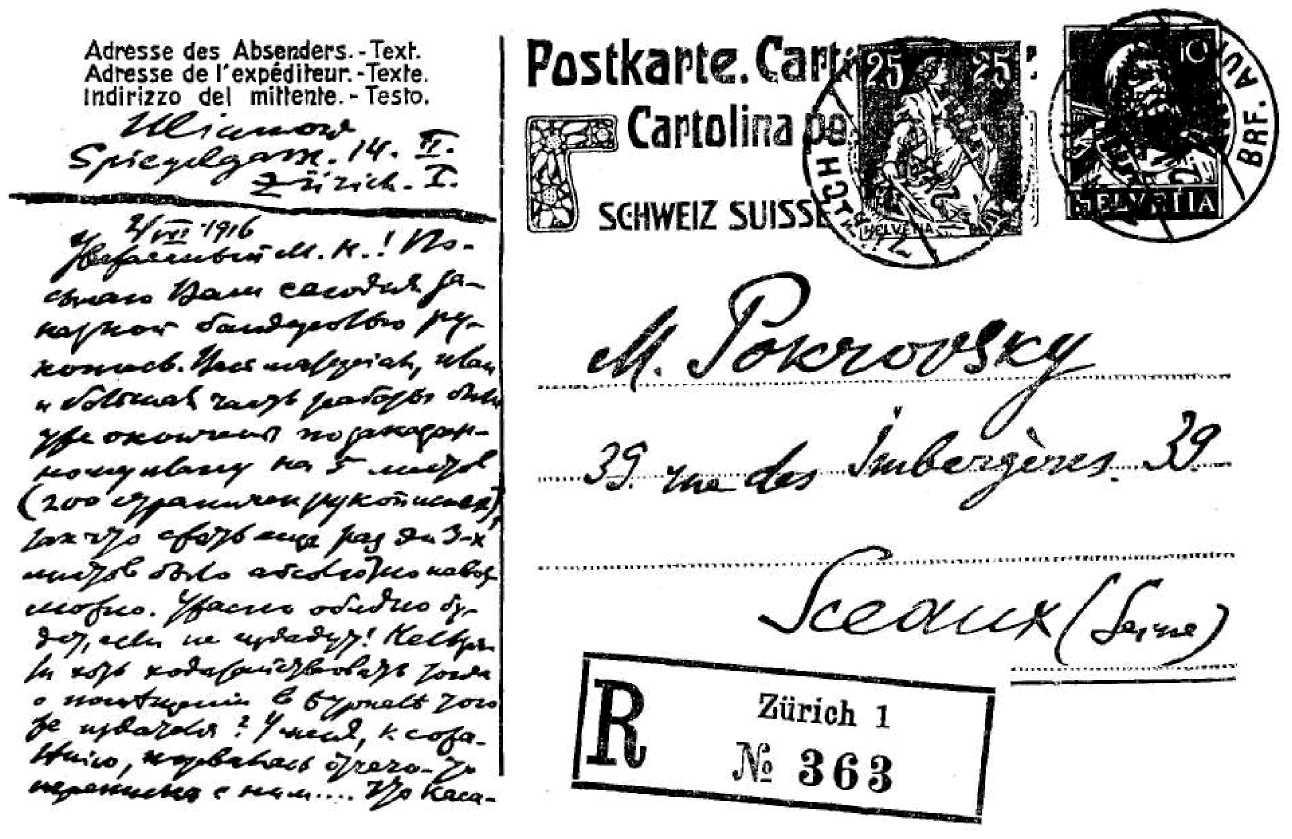 Adresse des Absenders.-Text.
Adresse de l'expéditeur.-Texte.
Indirizzo del mittente.-Testo.
Ulianow
Spiegelgasse. 14. II.
Zürich. I.
2/VII 1916
Уважаемый М. Н.! По-
сылаю Вам сегодня за-
казной бандеролью ру-
копись. Весь материал, план
и большая часть работы были
уже окончены по заказан-
ному плану на 5 листов
(200 страничек рукописных),
так что сжать еще раз до 3-х
листов было абсолютно невоз
можно. Ужасно обидно бу-
дет, если не издадут! Нельзя
ли хоть ходатайствовать тогда
о помещении в журнале того
же издателя? У меня, к сожа-
лению, порвалась отчего-то
переписка с ним.... Что каса-
Postkarte. Cart
Cartolina po
SCHWEIZ SUISSE
25 25
HELVETIA
10
HELVETIA
BRF. AU
M. Pokrovsky
39. rue des Imbergères. 39.
Sceaux (Seine)
R
Zürich 1
№ 363